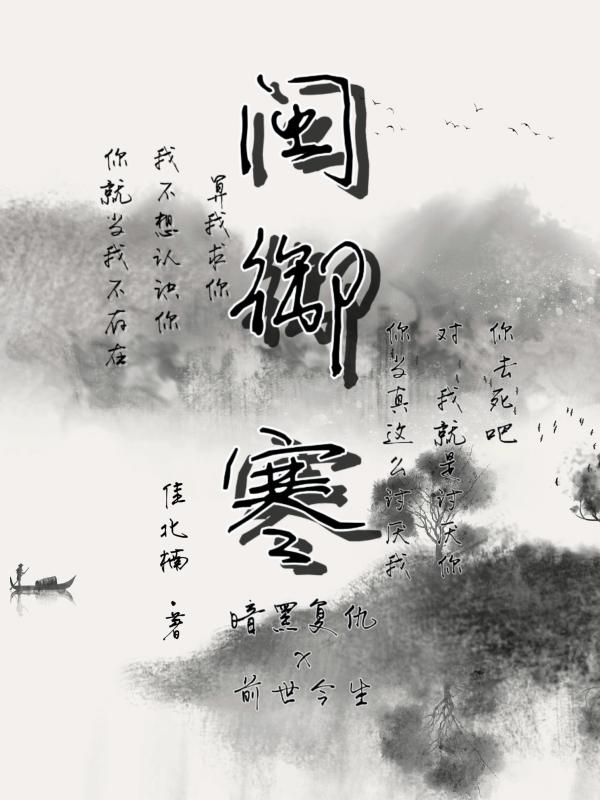 闽御寒
你去死吧
对 我就是讨厌你
你当真这么讨厌我
算我求你
我不想认识你
你就当我不存在
佳北楠·著
暗黑复仇
×
前世今生